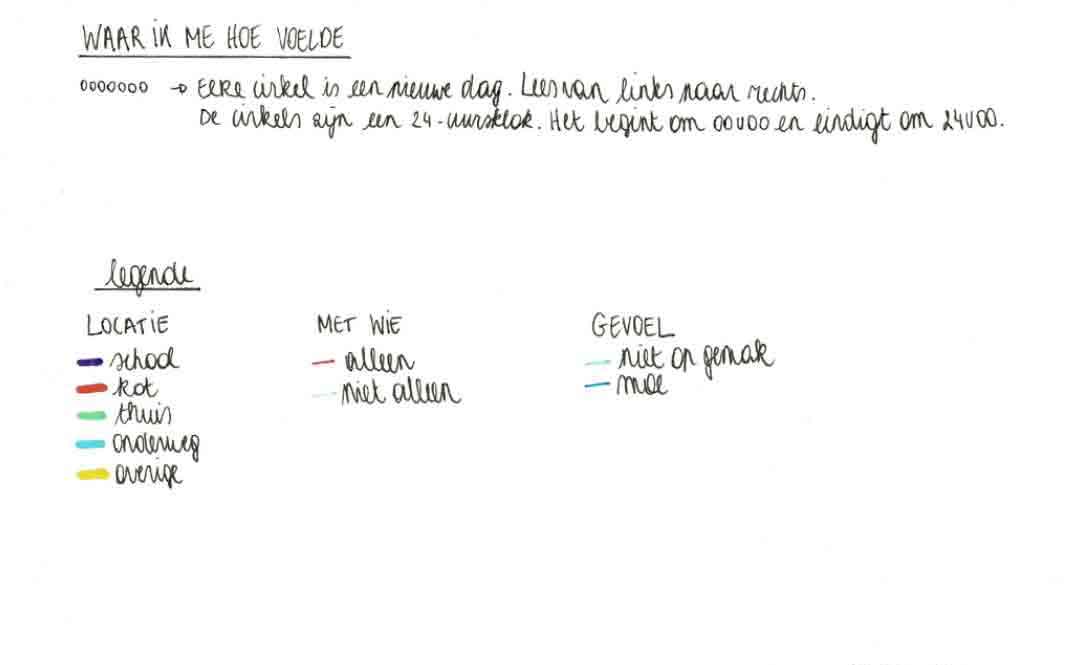 WAAR IK ME HOE VOELDE
0000000 → Elke cirkel is een nieuwe dag. Lees van links naar rechts.
De cirkels zijn een 24-uursklok. Het begint om 00u00 en eindigt om 24u00.
legende
LOCATIE
school
kot
thuis
onderweg
overige
MET WIE
alleen
niet alleen
GEVOEL
niet op gemak
moe